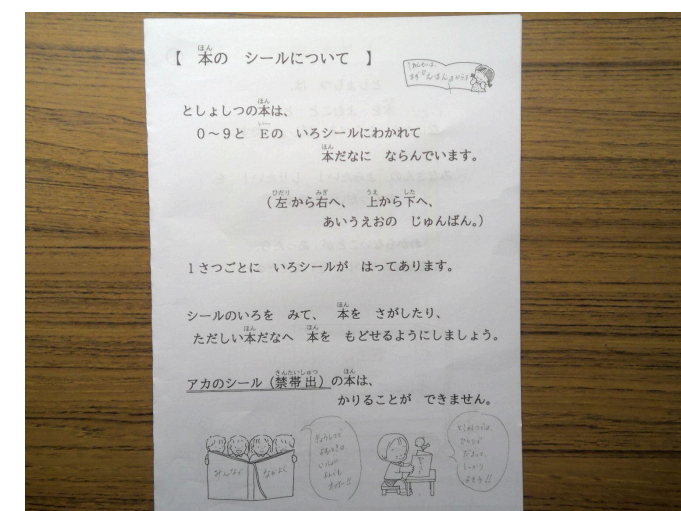 【 本の シールについて 】
としょしつの本は、
0～9と Eの いろシールにわかれて
本だなに ならんでいます。
(左から右へ、 上から下へ、
あいうえおの じゅんばん。)
1さつごとに いろシールが はってあります。
シールのいろを みて、 本を さがしたり、
ただしい本だなへ 本を もどせるようにしましょう。
アカのシール（禁帯出）の本は、
かりることが できません。
みんなで なかよく